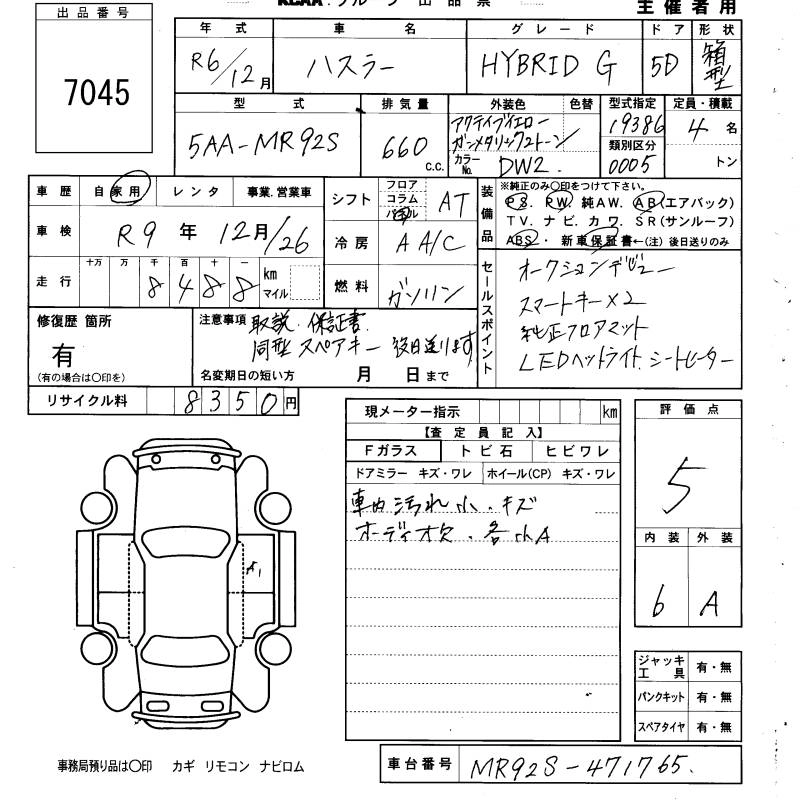 出品番号
7045
主催者用
年式 車名 グレード ドア 形状
R6/12月 ハスラー HYBRID G 5D 箱型
型式 排気量 外装色 色替 型式指定 定員・積載
5AA-MR92S 660 c.c. アクティブイエロー
ガンメタリック2トーン 19386 4名
カラーNo. DW2. 類別区分 0005 トン
車歴 自家用 レンタ 事業.営業車
車検 R9年 12月/26
走行 十万 万 千 百 十 一 km マイル
8488
シフト フロア コラム パネル AT
冷房 A A/C
燃料 ガソリン
装備品
※純正のみ〇印をつけて下さい。
PS. PW. 純AW. AB(エアバック)
TV. ナビ. カワ. SR(サンルーフ)
ABS・ 新車保証書←(注) 後日送りのみ
セールスポイント
オークションデビュー
スマートキー×2
純正フロアマット
LEDヘッドライト.シートヒーター
修復歴 箇所
有
(有の場合は〇印を)
注意事項 取説.保証書.
同型 スペアキー 後日送ります
名変期日の短い方 月 日まで
リサイクル料 8350円
現メーター指示 km
【査定員記入】
Fガラス トビ石 ヒビワレ
ドアミラー キズ・ワレ ホイール(CP) キズ・ワレ
車内汚れ小.キズ
オーディオ欠.各小A
評価点
5
内装 外装
6 A
A1
ジャッキ工具 有・無
パンクキット 有・無
スペアタイヤ 有・無
事務局預り品は〇印 カギ リモコン ナビロム
車台番号 MR92S-471765.